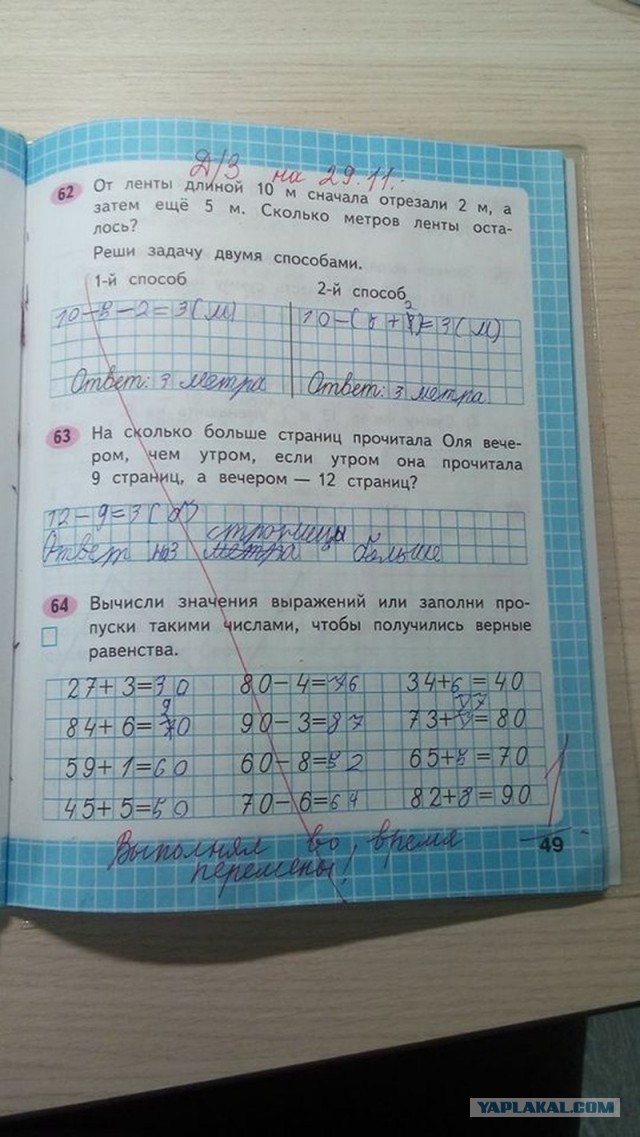 Д/З на 29.11.
62 От ленты длиной 10 м сначала отрезали 2 м, а
затем ещё 5 м. Сколько метров ленты оста-
лось?
Реши задачу двумя способами.
1-й способ 2-й способ
10-5-2=3(м) 10-( + )=3(м)
Ответ: 3 метра Ответ: 3 метра
63 На сколько больше страниц прочитала Оля вече-
ром, чем утром, если утром она прочитала
9 страниц, а вечером — 12 страниц?
12-9=3(б)
страницы
Ответ на3 метра больше
64 Вычисли значения выражений или заполни про-
пуски такими числами, чтобы получились верные
равенства.
27+3=30 80-4=76 34+6=40
84+6=90 90-3=87 73+7=80
59+1=60 60-8=52 65+5=70
45+5=50 70-6=64 82+8=90
1
Выполнял во время
перемены!
49
YAPLAKAL.COM